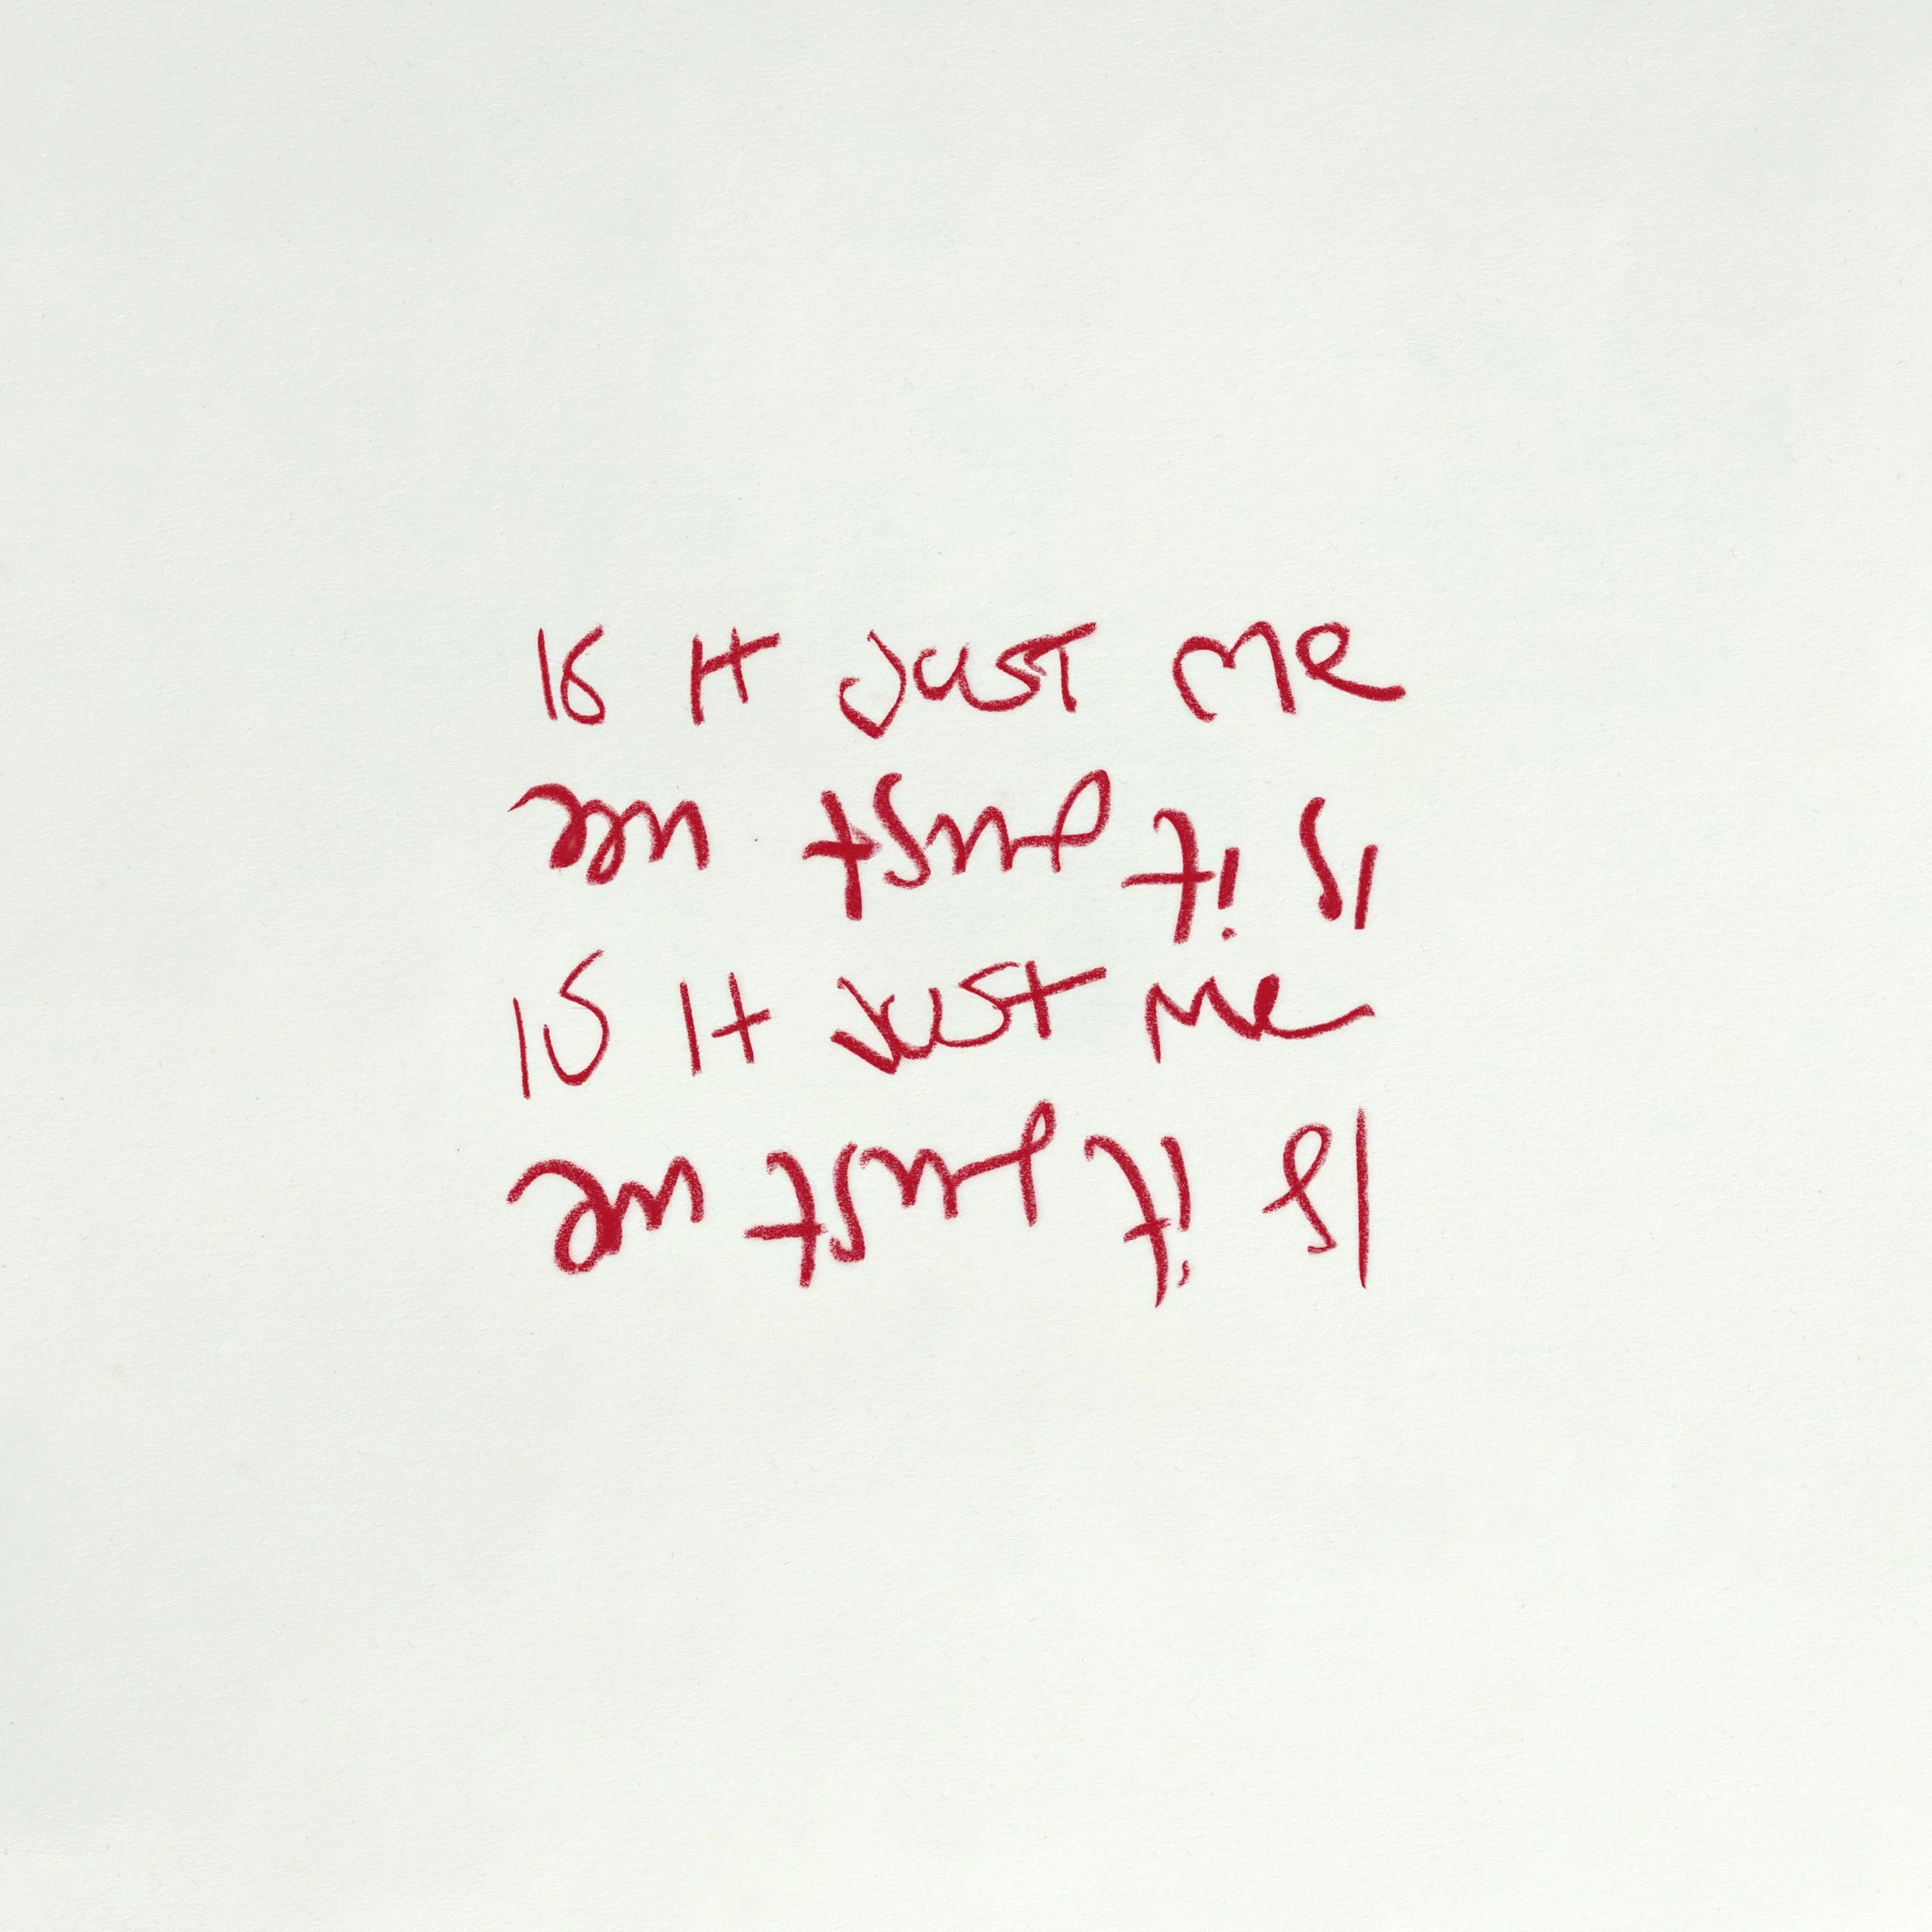 Is It Just Me
Is it just me
Is It Just Me
Is it just me